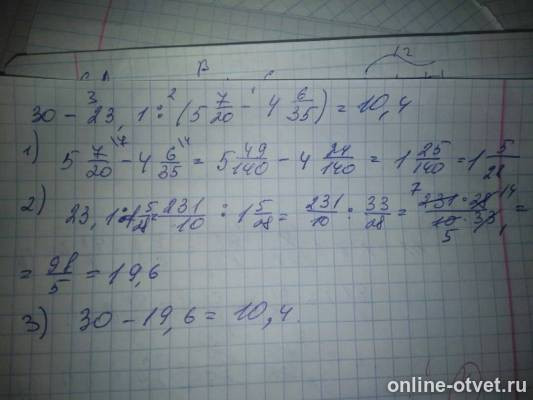 B
12
30 - 23,1 : (5 7/20 - 4 6/35) = 10,4
1) 5 7/20 - 4 6/35 = 5 49/140 - 4 24/140 = 1 25/140 = 1 5/28
2) 23,1 : 1 5/28 = 231/10 : 1 5/28 = 231/10 : 33/28 = 231 · 28/10 · 33 =
= 98/5 = 19,6
3) 30 - 19,6 = 10,4
online-otvet.ru